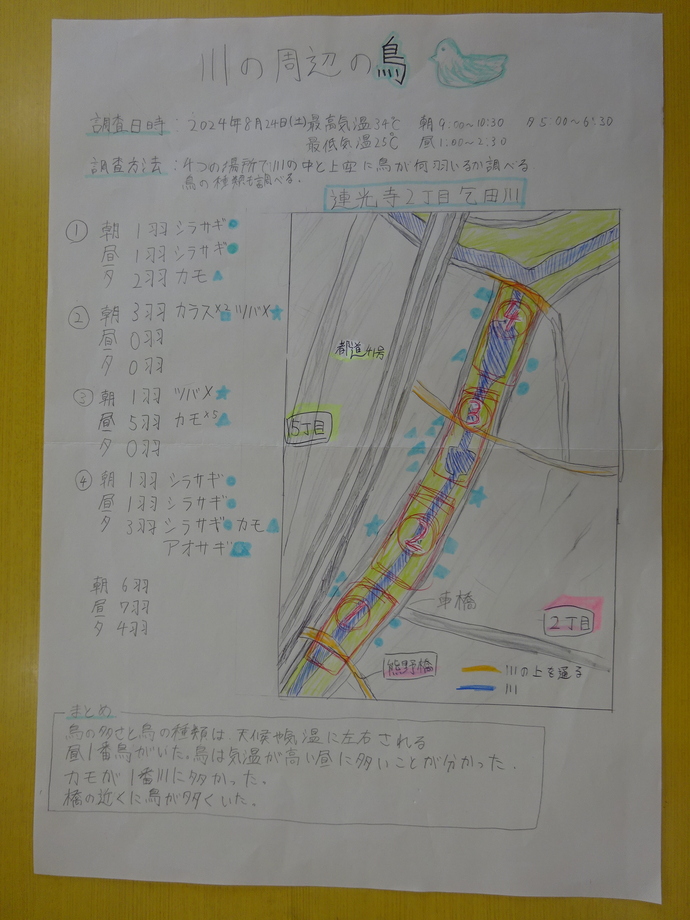 川の周辺の鳥
調査日時:2024年8月24日(土)最高気温34℃ 朝9:00~10:30 夕5:00~6:30
最低気温25℃ 昼1:00~2:30
調査方法:4つの場所で川の中と上空に鳥が何羽いるか調べる
鳥の種類も調べる.
連光寺2丁目乞田川
① 朝 1羽 シラサギ
昼 1羽 シラサギ
夕 2羽 カモ
② 朝 3羽 カラス×2 ツバメ
昼 0羽
夕 0羽
③ 朝 1羽 ツバメ
昼 5羽 カモ×5
夕 0羽
④ 朝 1羽 シラサギ
昼 1羽 シラサギ
夕 3羽 シラサギ カモ
アオサギ
朝 6羽
昼 7羽
夕 4羽
4
都道41号
3
5丁目
2
車橋
1
2丁目
熊野橋
川の上を通る
川
まとめ
鳥の多さと鳥の種類は、天候や気温に左右される
昼1番鳥がいた。鳥は気温が高い昼に多いことが分かった.
カモが1番川に多かった.
橋の近くに鳥が多くいた.